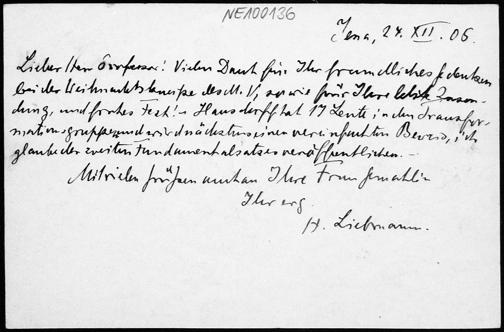 NE100136
Jena, 24. XII. 06.
Lieber Herr Professor! Vielen Dank für Ihr freundliches Gedenken
bei der Weihnachts des M. V, sowie für Ihre letzte Zusen-
dung, und frohes Fest! – Hausdorff hat 17 Leute in den Transfor-
mationsgruppen und wird nächstens einen vereinfachten Beweis, ich
glaube der zweiten Fundamentalsatzes veröffentlichen. –
Mit vielen Grüßen auch an Ihre Frau Gemahlin
Ihr erg.
H. Liebmann.